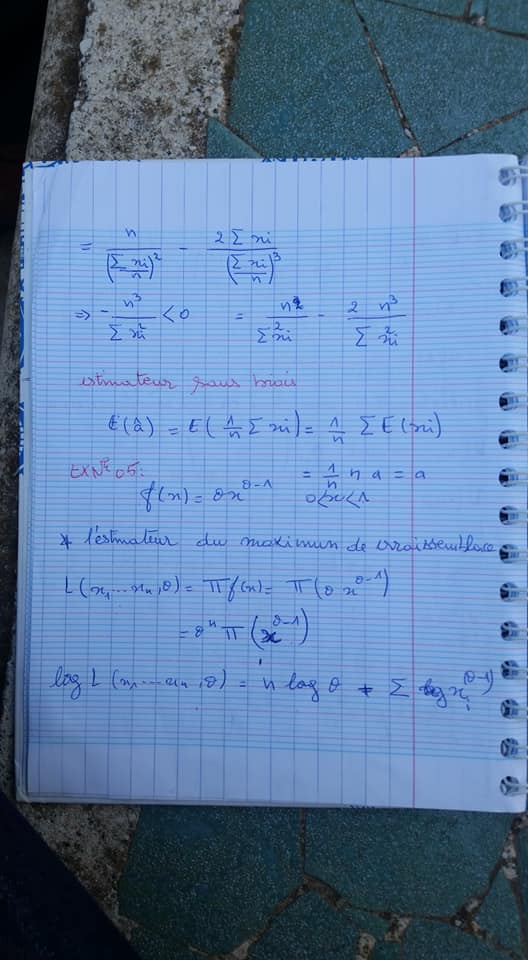 = n / (Σxi/n)² - 2Σxi / (Σxi/n)³
⇒ - n³ / Σxi² < 0 = n² / Σxi² - 2 n³ / Σxi²
estimateur sans biais
E(â) = E(1/n Σxi) = 1/n ΣE(xi)
= 1/n n a = a
EXN° 05:
f(x) = θx^(θ-1) 0<x<1
* l'estimateur du maximun de vraissemblace
L(x1...xn,θ) = Πf(x) = Π(θx^(θ-1))
= θ^n Π(x^(θ-1))
log L(x1...xn,θ) = n log θ + Σ log xi^(θ-1)